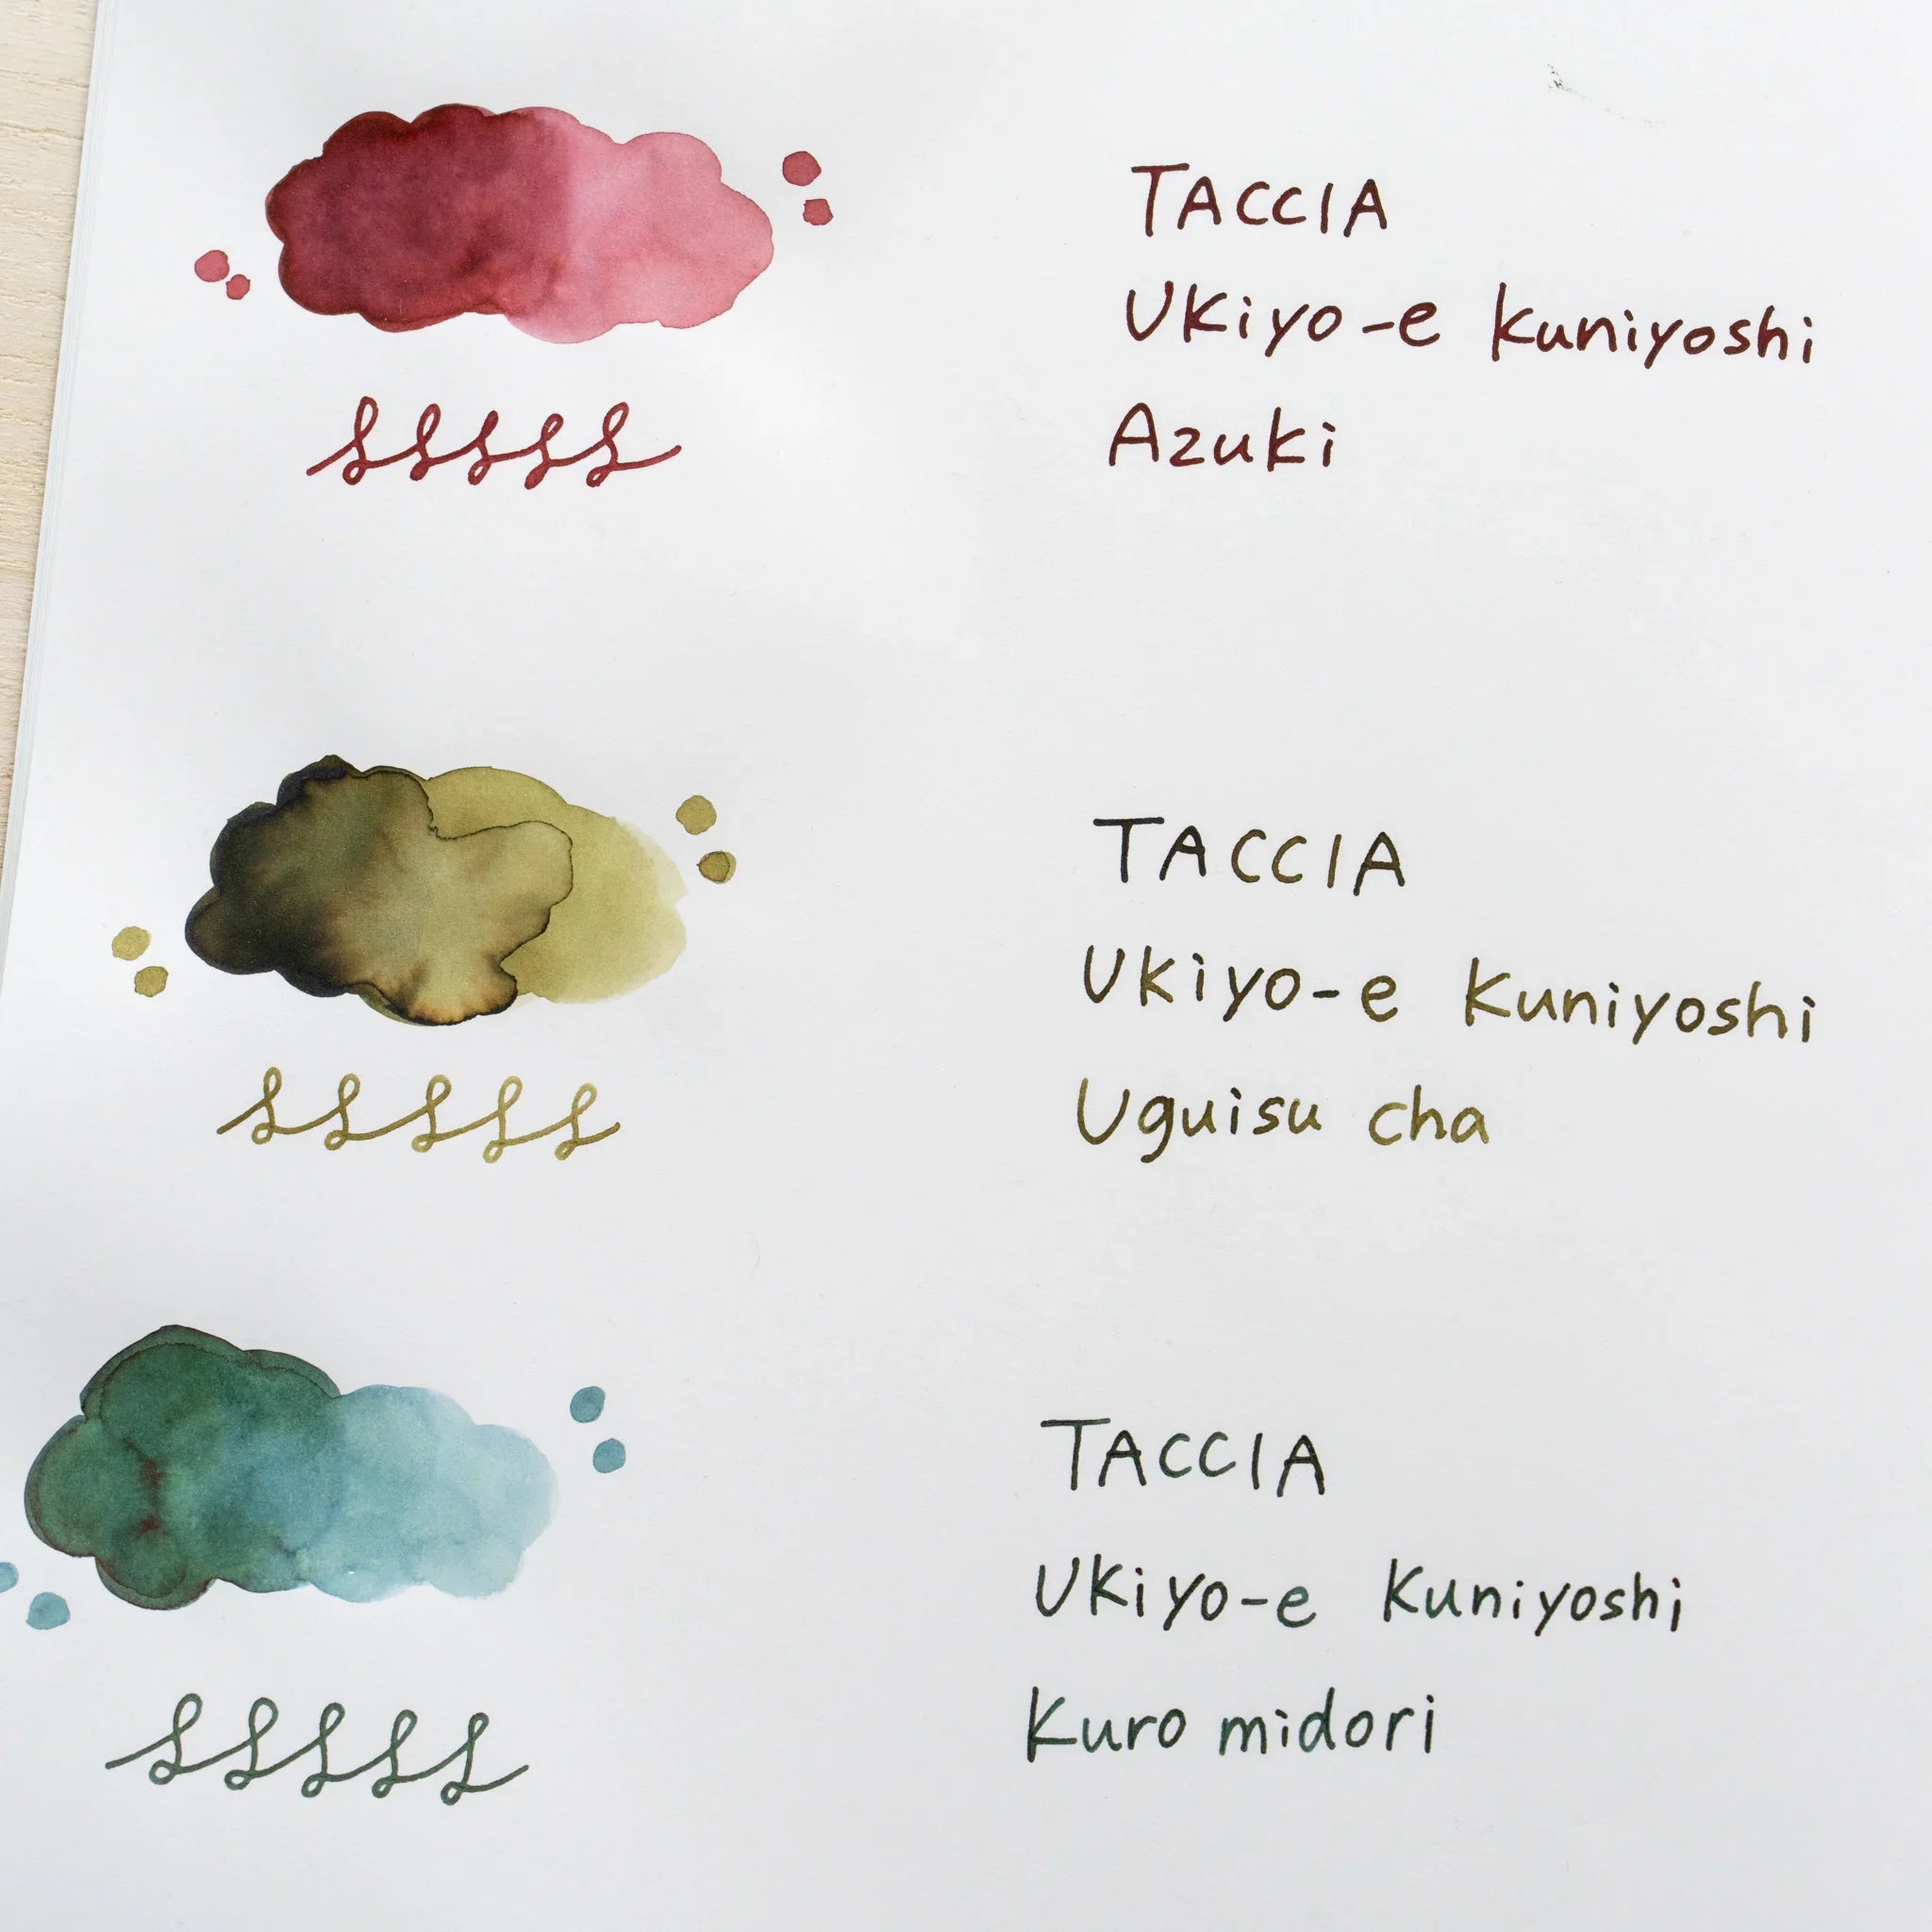 TACCIA
Ukiyo-e Kuniyoshi
Azuki
TACCIA
Ukiyo-e Kuniyoshi
Uguisu cha
TACCIA
Ukiyo-e Kuniyoshi
Kuro midori